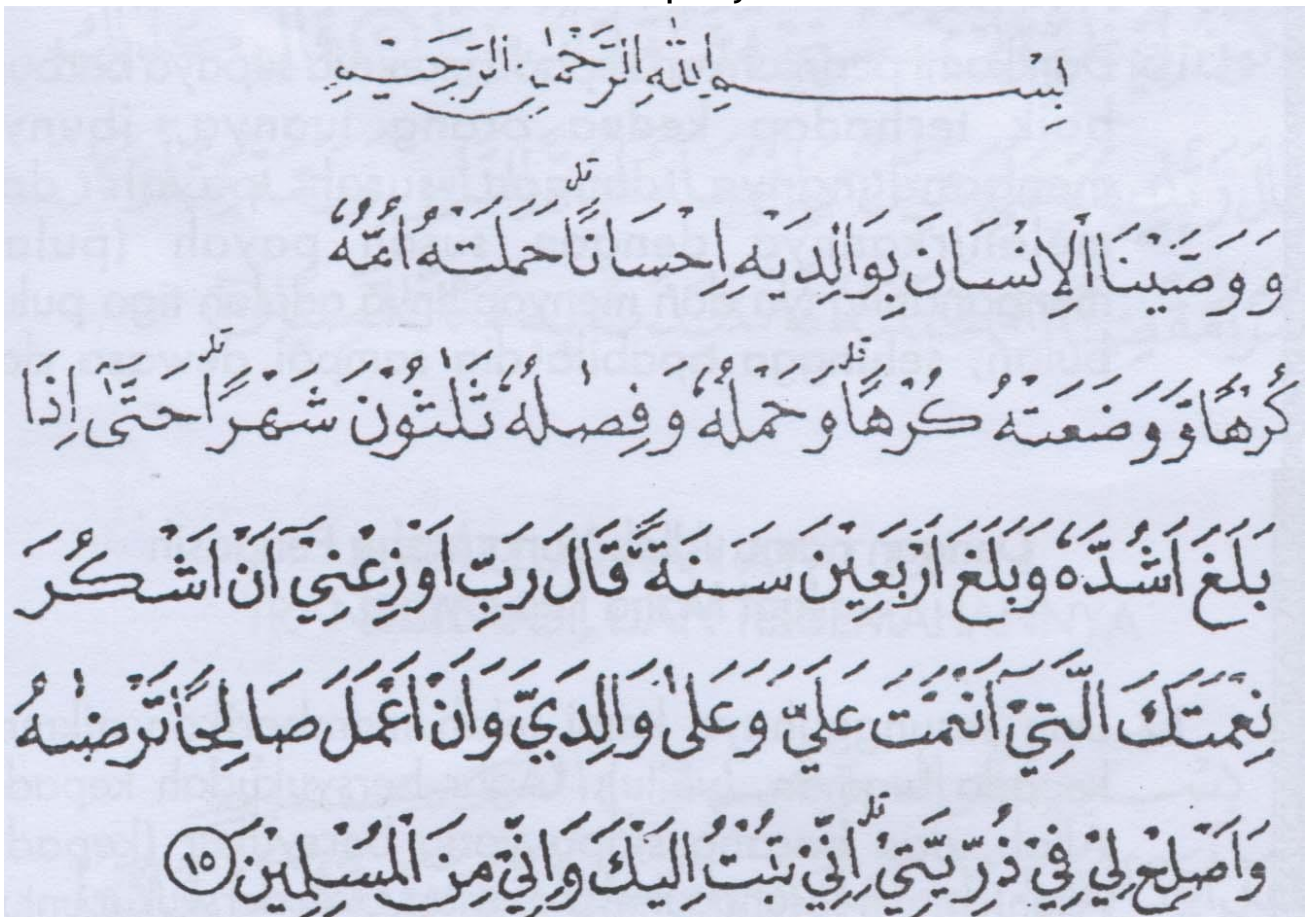 بِسْــــــمِ اللّٰهِ الرَّحْمٰنِ الرَّحِيْمِ
وَوَصَّيْنَا الْاِنْسَانَ بِوَالِدَيْهِ اِحْسَانًا ۗ حَمَلَتْهُ اُمُّهٗ
كُرْهًا وَّوَضَعَتْهُ كُرْهًا ۗ وَحَمْلُهٗ وَفِصٰلُهٗ ثَلٰثُوْنَ شَهْرًا ۗ حَتّٰىٓ اِذَا
بَلَغَ اَشُدَّهٗ وَبَلَغَ اَرْبَعِيْنَ سَنَةً قَالَ رَبِّ اَوْزِعْنِيْٓ اَنْ اَشْكُرَ
نِعْمَتَكَ الَّتِيْٓ اَنْعَمْتَ عَلَيَّ وَعَلٰى وَالِدَيَّ وَاَنْ اَعْمَلَ صَالِحًا تَرْضٰىهُ
وَاَصْلِحْ لِيْ فِيْ ذُرِّيَّتِيْ ۗ اِنِّيْ تُبْتُ اِلَيْكَ وَاِنِّيْ مِنَ الْمُسْلِمِيْنَ ١٥